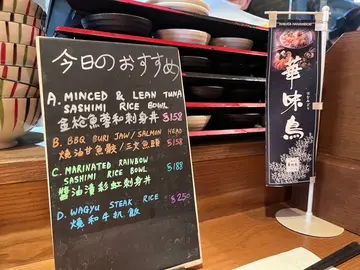 今日のおすすめ
A. MINCED & LEAN TUNA
SASHIMI RICE BOWL
金枪魚蓉和刺身丼 $158
B. BBQ BURI JAW / SALMON HEAD
燒油甘魚鮫/三文魚頭 $158
C. MARINATED RAINBOW
SASHIMI RICE BOWL $188
醬油漬彩虹刺身丼
D. WAGYU STEAK RICE $250
燒和牛扒飯
華味鳥